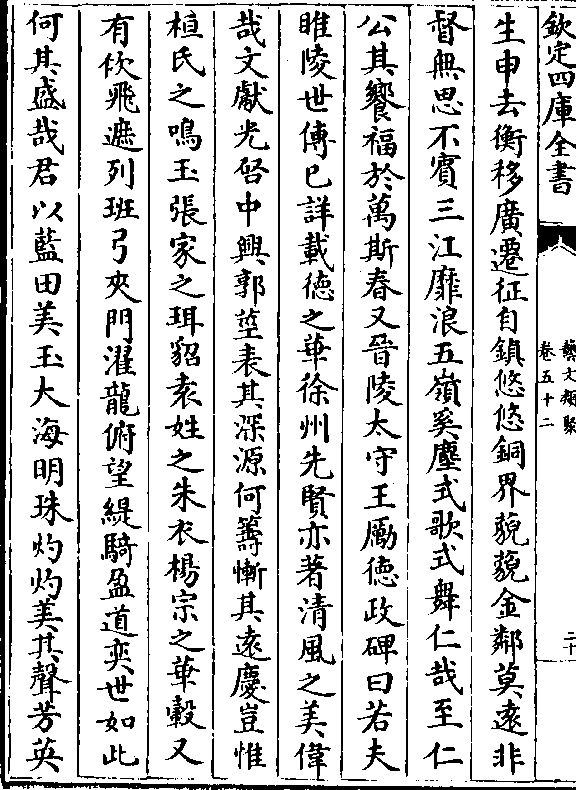 欽定四庫全書
藝文類聚
卷五十二
二十
生申去衡移廣遷征自鎮悠悠銅界藐藐金鄰莫遠非
督無思不賓三江靡浪五嶺奚塵式歌式舞仁哉至仁
公其饗福於萬斯春又晉陵太守王勵德政碑曰若夫
睢陵世傳已詳載德之華徐州先賢亦著清風之美偉
哉文獻光啓中興郭莖表其深源何籌慚其遠慶豈惟
桓氏之鳴玉張家之珥貂袁姓之朱衣楊宗之華轂又
有佽飛遮列班弓夾門濯龍俯望緹騎盈道奕世如此
何其盛哉君以藍田美玉大海明珠灼灼美其聲芳英